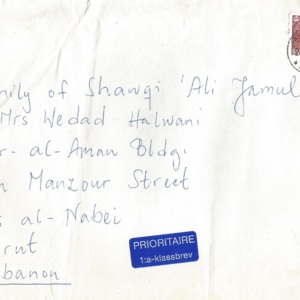 mily of Shawqi 'Ali Jamul
Mrs Wedad Halwani
r- al-Aman Bldg.
n Manzour Street
s al-Nabei
rut
banon
PRIORITAIRE
1:a-klassbrev